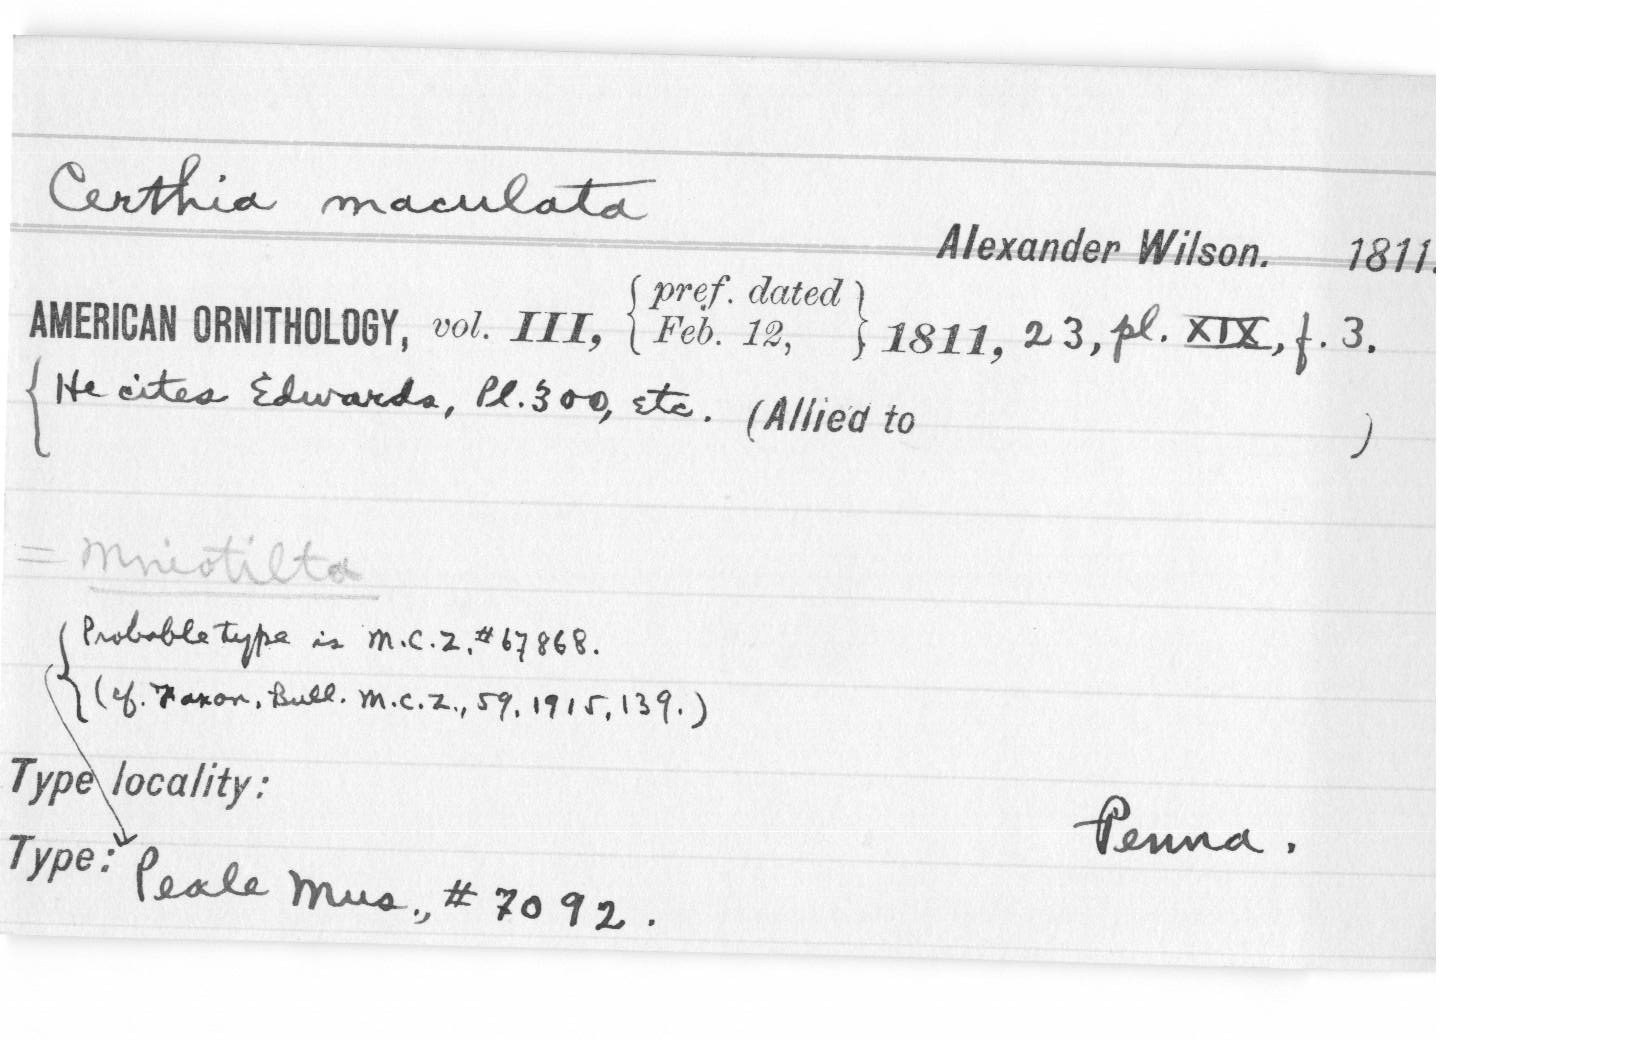 Certhia maculata
Alexander Wilson. 1811.
AMERICAN ORNITHOLOGY, vol. III, { pref. dated Feb. 12, } 1811, 23, pl. XIX, f. 3.
{ He cites Edwards, Pl. 300, etc. (Allied to )
= Mniotilta
{ Probable type is M.C.Z. #67868.
(cf. Faxon, Bull. M.C.Z., 59, 1915, 139.)
Type locality:
Penna.
Type: Peale Mus., #7092.